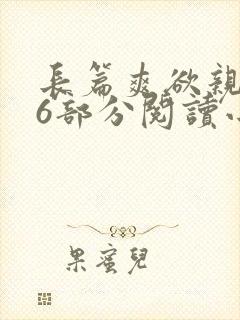 長篇爽欲親
6部分閱讀
果蜜兒